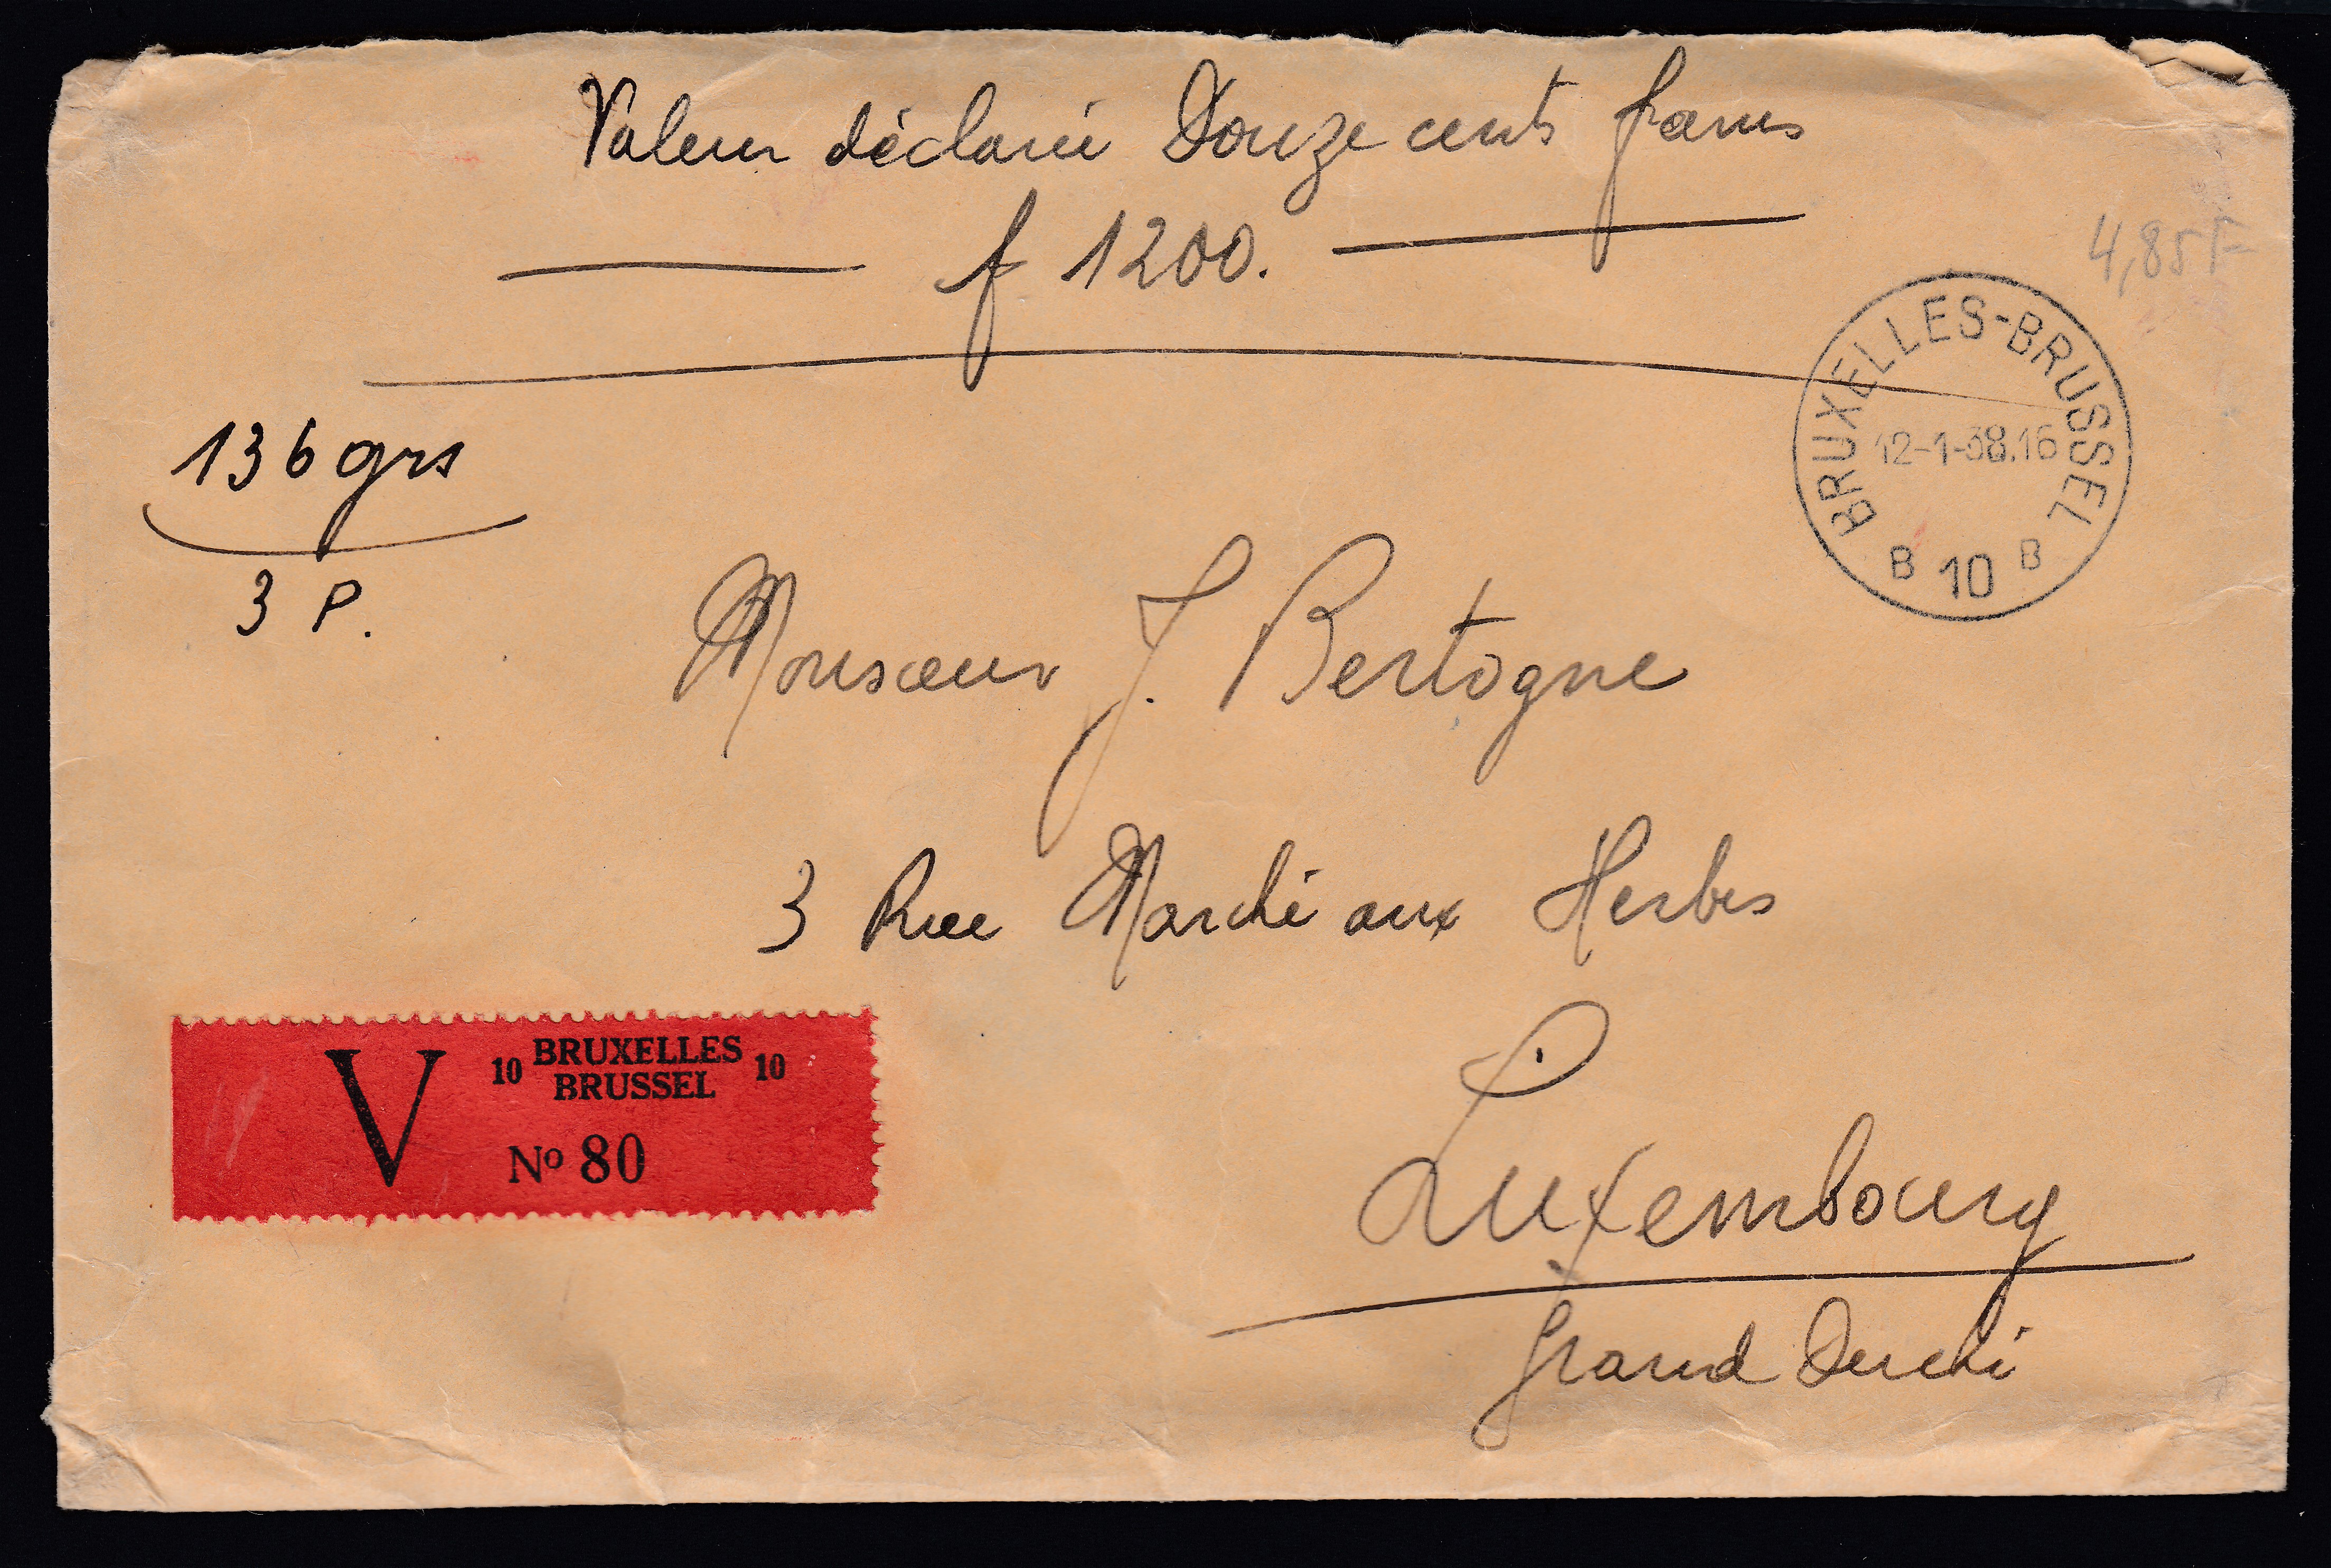 Valeur déclarée Douze cents francs
f 1200.
4,85 F
BRUXELLES-BRUSSEL
12-1-38.16
B 10 B
136 grs
3 P.
Monsieur J. Bertogne
3 Rue Marché aux Herbes
V 10 BRUXELLES 10
BRUSSEL
No 80
Luxembourg
Grand Duché